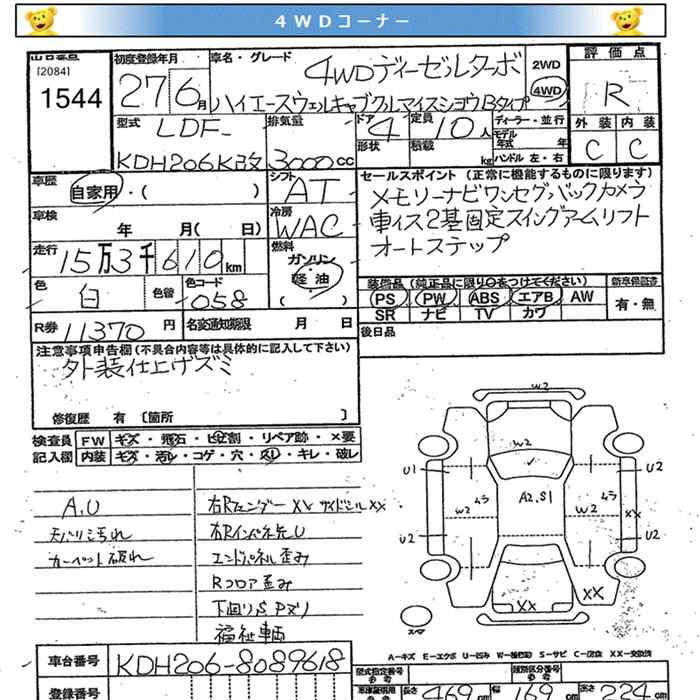 4WDコーナー
出品番号
[2084]
1544
初度登録年月
27 6月
車名・グレード
4WDディーゼルターボ
ハイエースウェルキャブクルマイスショウBタイプ
2WD
4WD
評価点
R
外装 内装
C C
型式
LDF-
KDH206K改
排気量
3000cc
ドア
4
定員
10人
形状
積載
kg
ディーラー・並行
モデル
年式 年
ハンドル 左・右
車歴
自家用・( )
シフト
AT
セールスポイント (正常に機能するものに限ります)
メモリーナビワンセグバックカメラ
車イス2基固定スイングアームリフト
オートステップ
車検
年 月( 日)
冷房
WAC
走行
15万3千610km
燃料
ガソリン
軽油
( )
色
白
色替
色コード
058
装備品 (純正品に限り○をつけてください)
PS PW ABS エアB AW
SR ナビ TV カワ
新車保証書
有・無
R券 11370円
名変通知期限 月 日
後日品
注意事項申告欄 (不具合内容等は具体的に記入して下さい)
外装仕上げズミ
修復歴 有 〔箇所 〕
検査員
記入欄
FW キズ・飛石・ヒビ割・リペア跡・×要
内装 キズ・汚レ・コゲ・穴・スレ・キレ・破レ
A.U
天バリ汚れ
カーペット破れ
右Rフェンダー XX サイドシル XX
右Rインパネ先U
エンドパネル歪み
Rフロア歪み
下回りS Pズリ
福祉車輌
W2
W2
U1
U2
ムラ
W2
A2.S1
ムラ
W2
XX
U2
U2
XX
XX
スペア
A=キズ E=エクボ U=凹み W=補修跡 S=サビ C=腐食 XX=交換済
車台番号
KDH206-8089618
登録番号
型式指定番号
参考
類別区分番号
参考
長さ 469cm
幅 169cm
高さ 224cm